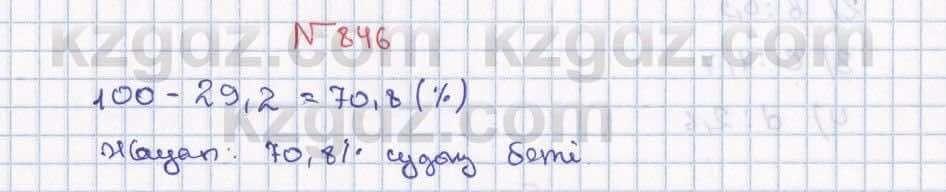 № 846
100 - 29,2 = 70,8 (%)
Жауап: 70,8% судың беті.
kzgdz.com kzgdz.com
kzgdz.com